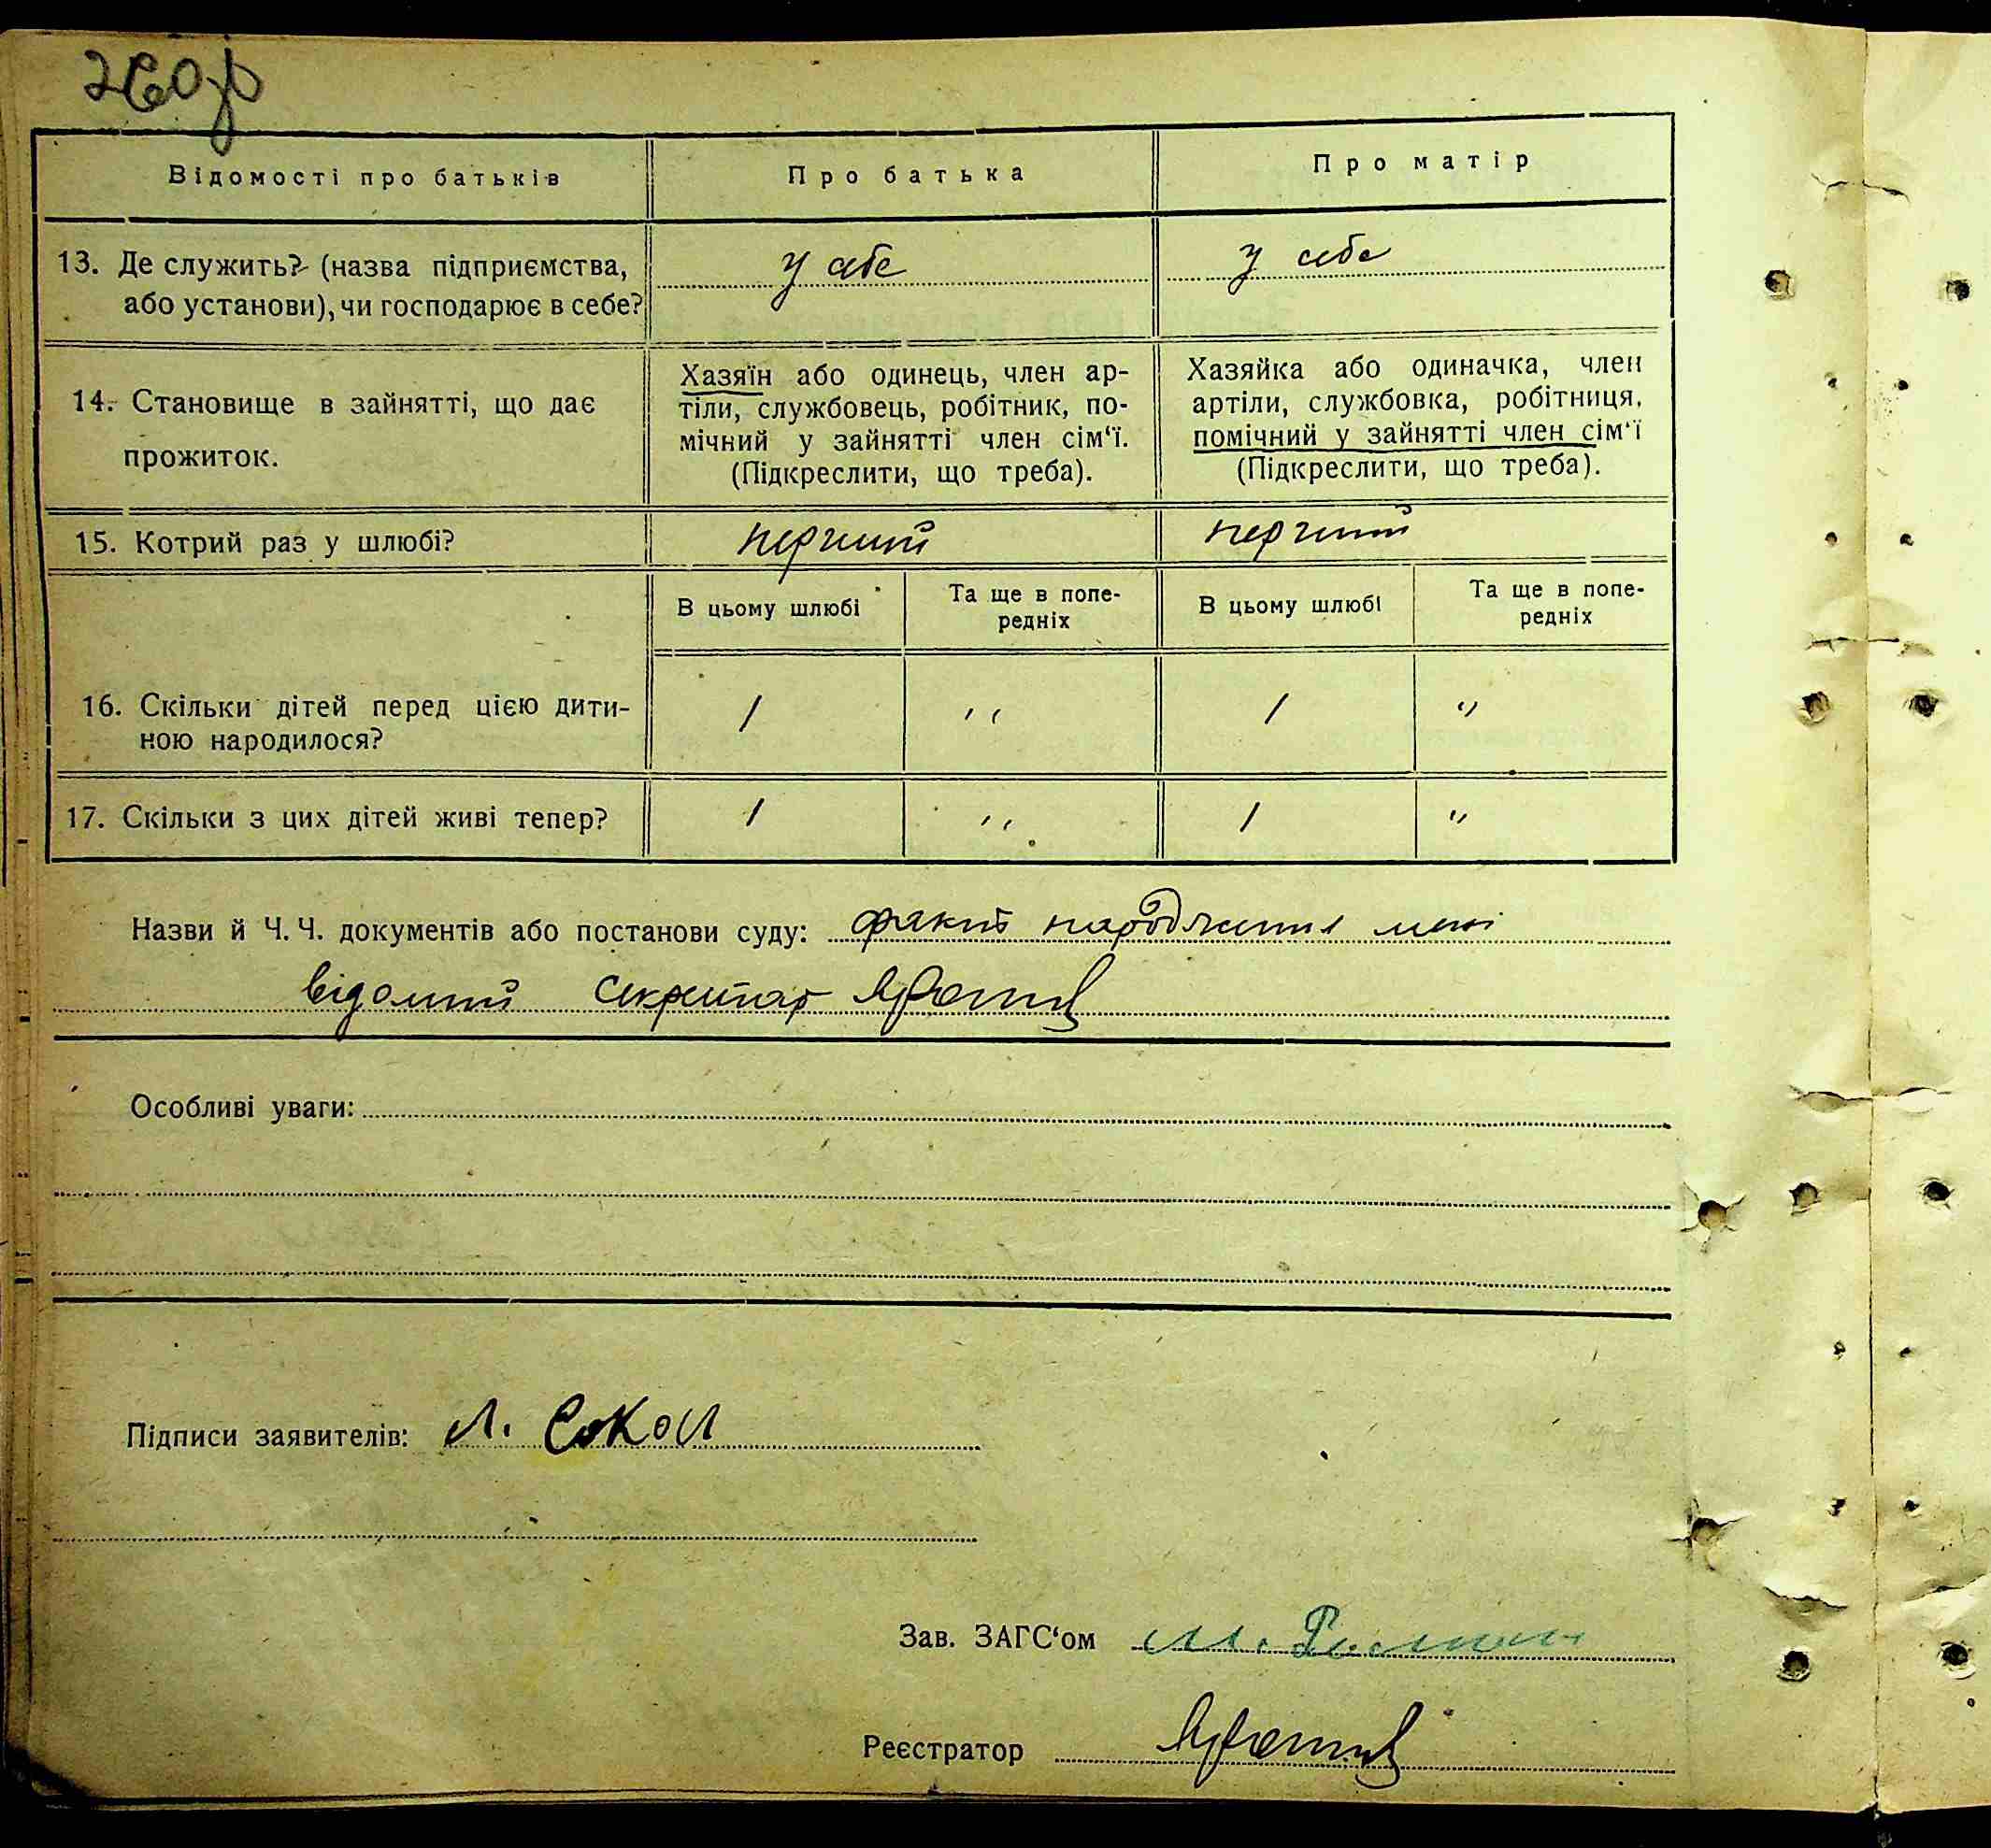 260
Відомості про батьків
Про батька
Про матір
13. Де служить? (назва підприємства,
або установи), чи господарює в себе?
у себе
у себе
14. Становище в зайнятті, що дає
прожиток.
Хазяїн або одинець, член ар-
тіли, службовець, робітник, по-
мічний у зайнятті член сім'ї.
(Підкреслити, що треба).
Хазяйка або одиначка, член
артіли, службовка, робітниця,
помічний у зайнятті член сім'ї
(Підкреслити, що треба).
15. Котрий раз у шлюбі?
перший
перший
В цьому шлюбі
Та ще в попе-
редніх
В цьому шлюбі
Та ще в попе-
редніх
16. Скільки дітей перед цією дити-
ною народилося?
1
"
1
"
17. Скільки з цих дітей живі тепер?
1
"
1
"
Назви й Ч. Ч. документів або постанови суду: факт народження мені
відомий секретар
Особливі уваги:
Підписи заявителів: Л. Сокол
Зав. ЗАГС'ом М.
Реєстратор